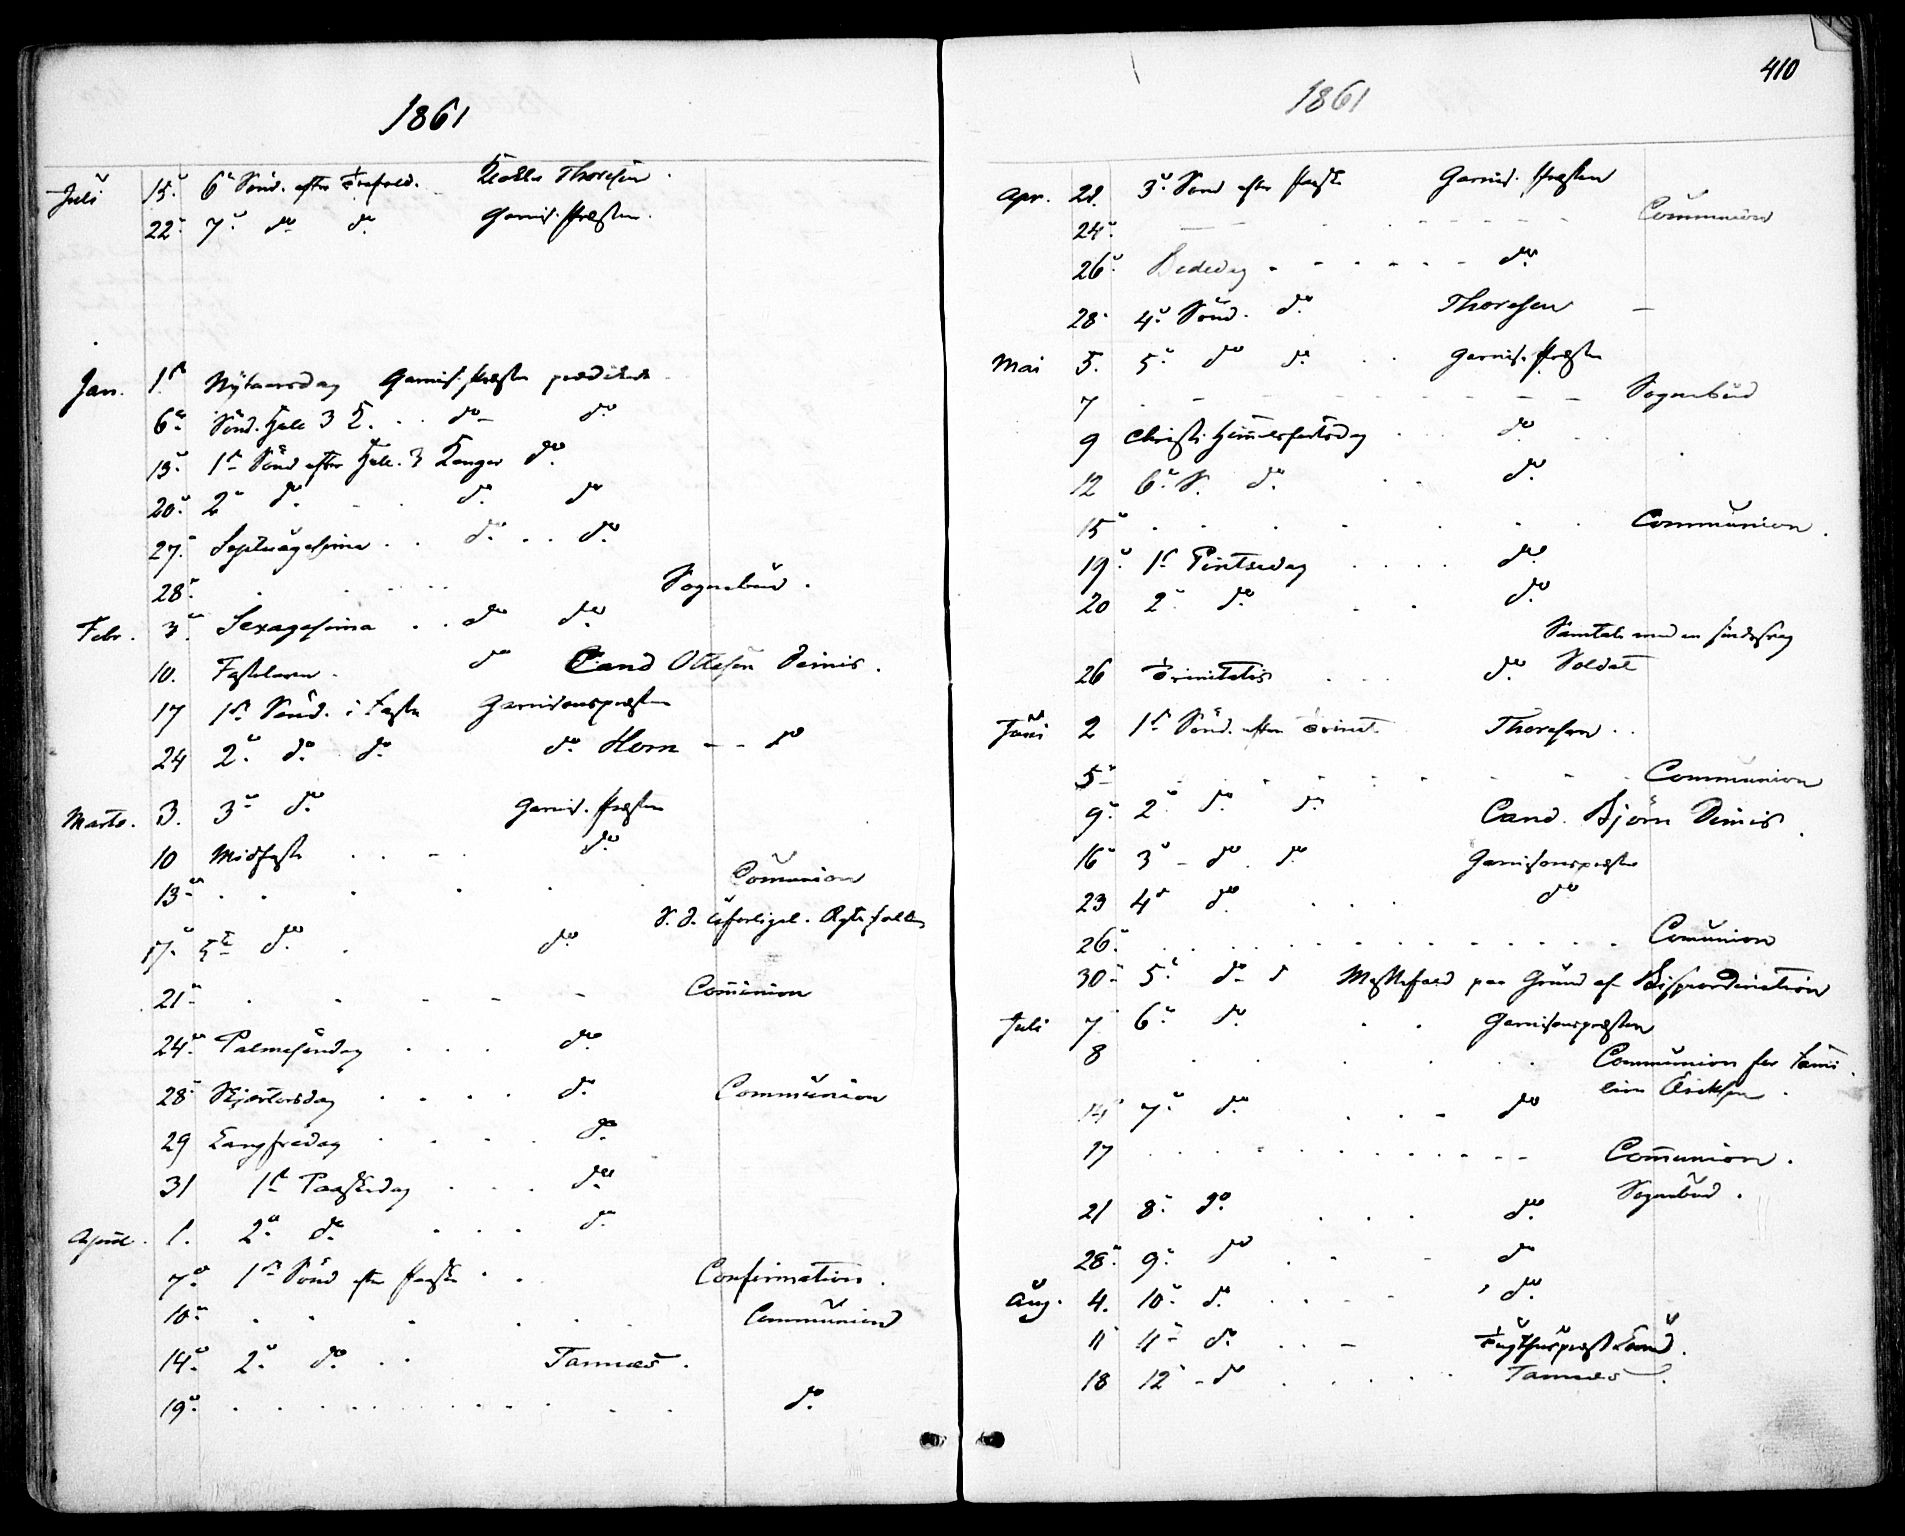 1861
Juli 15. 6te Sönd. efter Trefold. Thoresen.
22. 7. do do Garnis. Præsten.
Jan. 1ste Nytaarsdag Garnis. Præsten prædikede
6te Sönd. Hell. 3 K. . . do do
13. 1ste Sönd efter Hell. 3 Konger do
20. 2. do . . do do
27. Septuagesima . . do . . do
28. . . . . Sognebud.
Febr. 3. Sexagesima . . do do
10. Fastelavn. do Cand Ottesen Dimis.
17 1ste Sönd. i Faste Garnisonspræsten
24 2. do do do Horn - - do
Marts. 3. 3. do Garnis. Præsten
10 Midfaste . . . . do
13. . . . . . . Comunion
17. 5te do . do S. d. uforligel. Ægtefolk
21. . . . . . Comunion
24. Palmesöndag . . . do
28. Skjærtorsdag . . . . do Communion
29 Langfredag . . . . do
31 1ste Paaskedag . . . do
April. 1. 2. do . . . do
7. 1ste Sönd efter Paaske . . Confirmation.
10. . . . . . . Communion
14. 2. do . . Tannæs.
19. . . . . . . . . . . . do
410
1861
Apr. 21. 3. Sönd efter Paaske Garnis. Præsten
24. - - - - - - Communion
26. Bededag - - - - - - do
28. 4. Sönd. do Thoresen -
Mai 5. 5. do do . . Garnis. Præsten
7 . - - - - - - - - Sognebud
9 Christi Himmelfartsdag . . . do . .
12 6. S. do . . do
15 . . . . . . . Communion.
19. 1ste Pintsedag . . . . do
20 2. do . . do
Samtale med en
26 Trinitatis . . . do Soldat
Juni 2 1ste Sönd. efter Trinit. Thoresen. .
5 . . . . . . . . Communion
9. 2. do do Cand. Björn Dimis.
16 3. - do . do Garnisonspræsten
23 4. do . . . . do
26. . . . . . . . . . . . . . Comunion
30. 5. do d Messefald paa Grund af Bispeordination
Juli 7 6. do . . Garnisonspræsten
8 . . . . . . Communion for Fami
lien Ericksen.
14 7. do . . - do
17 . . . . . . . . . . - - Communion.
Sognebud.
21 8. do . . . do
28. 9. do . . - do
Aug. 4. 10. do . . - - do
11 11. do . . - Tugthuspræst Lund.
18 12 - do . . . . . Tannæs.